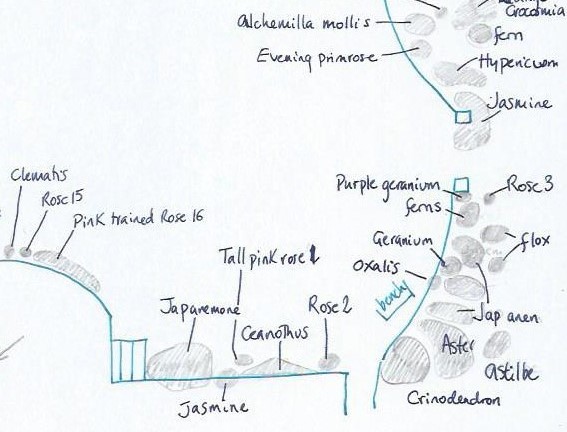 Crocosmia
Alchemilla mollis
fern
Evening primrose
Hypericum
Jasmine
Clematis
Rose 15
Pink trained Rose 16
Purple geranium
Rose 3
ferns
Geranium
flox
Oxalis
benchy
Tall pink rose 1
Japanemone
Rose 2
Ceanothus
Jap anen
Aster
astilbe
Jasmine
Crinodendron